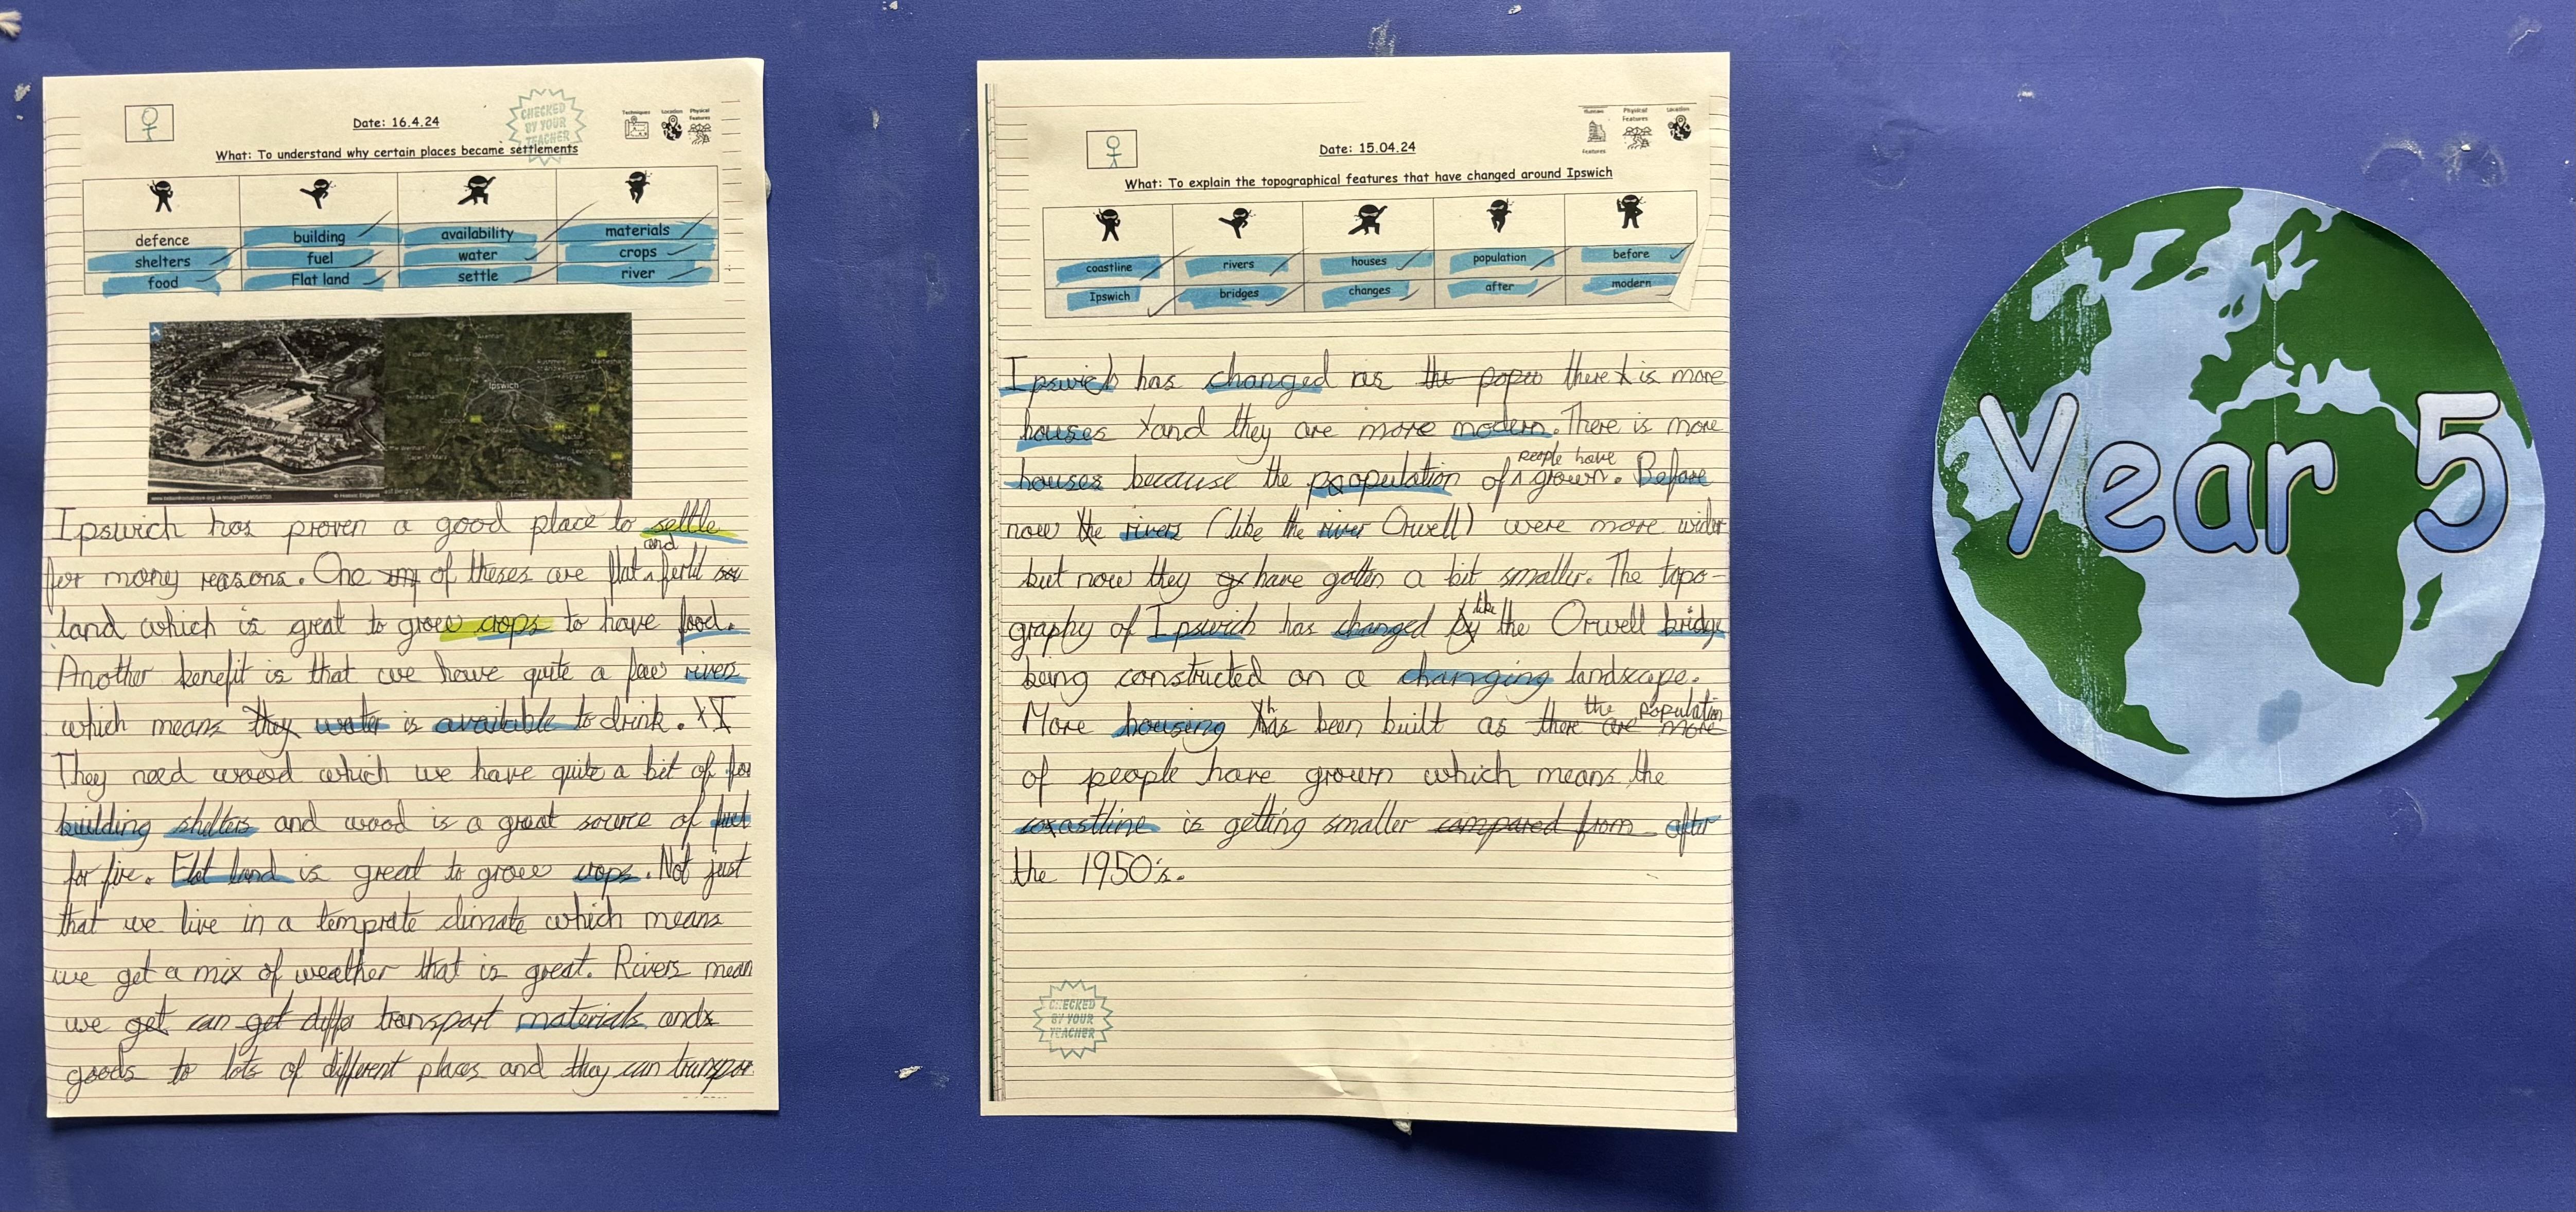 CHECKED
BY YOUR
TEACHER
Date: 16.4.24
Techniques
Location
Physical
Features
What: To understand why certain places became settlements
defence building availability materials
shelters fuel water crops
food Flat land settle river
Ipswich
© Historic England
Ipswich has proven a good place to settle
for many reasons. One of theses are flat and fertil
land which is great to grow crops to have food.
Another benefit is that we have quite a few rivers
which means they water is available to drink.
They need wood which we have quite a bit of for
building shelters and wood is a great source of fuel
for fire. Flat land is great to grow crops. Not just
that we live in a temprate climate which means
we get a mix of weather that is great. Rivers mean
we get can get differ transport materials and
goods to lots of different places and they can transpor
Human
Features
Physical
Features
Location
Date: 15.04.24
What: To explain the topographical features that have changed around Ipswich
coastline rivers houses population before
Ipswich bridges changes after modern
Ipswich has changed as the popoo there is more
houses and they are more modern. There is more
houses because the paopulation of people have grown. Before
now the rivers (like the river Orwell) were more wider
but now they have gotten a bit smaller. The topo-
graphy of Ipswich has changed by like the Orwell bridge
being constructed on a changing landscape.
More housing has been built as there are more the population
of people have grown which means the
coastline is getting smaller compared from after
the 1950's.
CHECKED
BY YOUR
TEACHER
Year 5